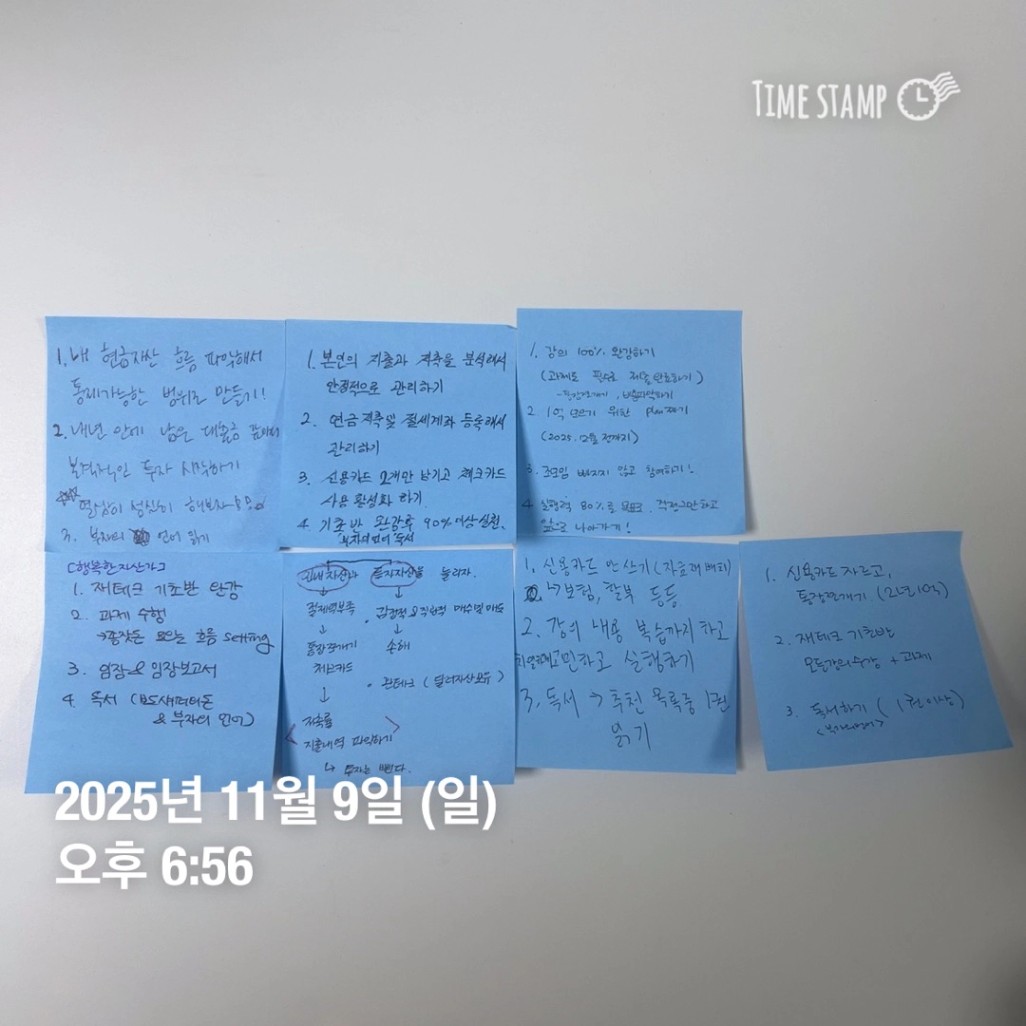 TIME STAMP
1. 내 현금자산 흐름 파악해서
통제가능한 범위로 만들기!
2. 내년 안에 남은 대출금
본격적인 투자 시작하기
열심히 성실히 해보자
3. 부자의 언어 읽기
1. 본인의 지출과 저축을 분석해서
안정적으로 관리하기
2. 연금저축및 절세계좌 등록해서
관리하기
3. 신용카드 2개만 남기고 체크카드
사용 활성화 하기.
4 기초반 완강후 90% 이상 실천.
부자의언어 독서
1. 강의 100% 완강하기
(과제도 필수로 제출완료하기)
2 1억 모으기 위한 plan짜기
(2025. 12월 전까지)
3. 조모임 빠지지 않고 참여하기!
4 실행력 80%로 걱정그만하고
앞으로 나아가기!
[행복한자산가]
1. 재테크 기초반 완강
2. 과제 수행
→종잣돈 모으는 흐름 setting
3. 임장 & 임장보고서
4. 독서
& 부자의 언어)
늘리자.
통장쪼개기
체크카드
손해
저축률
지출내역 파악하기
1. 신용카드 안쓰기
↳보험, 할부 등등
2. 강의 내용 복습까지 하고
고민하고 실행하기
3. 독서 → 추천 목록중 1권
읽기
1. 신용카드 자르고,
통장쪼개기 (2년1억)
2. 재테크 기초반
모든강의수강 + 과제
3. 독서하기 (1권이상)
<부자의언어>
2025년 11월 9일 (일)
오후 6:56